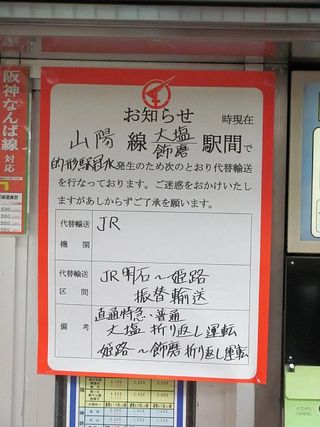 阪神なんば線
対応
お知らせ
時現在
山陽 線 大塩 飾磨 駅間で
的形駅冠水発生のため次のとおり代替輸送
を行なっております。ご迷惑をおかけいたし
ますがあしからずご了承を願います。
代替輸送
機関
JR
代替輸送
区間
JR明石〜姫路
振替輸送
備考
直通特急・普通
大塩 折り返し運転
姫路〜飾磨 折り返し運転